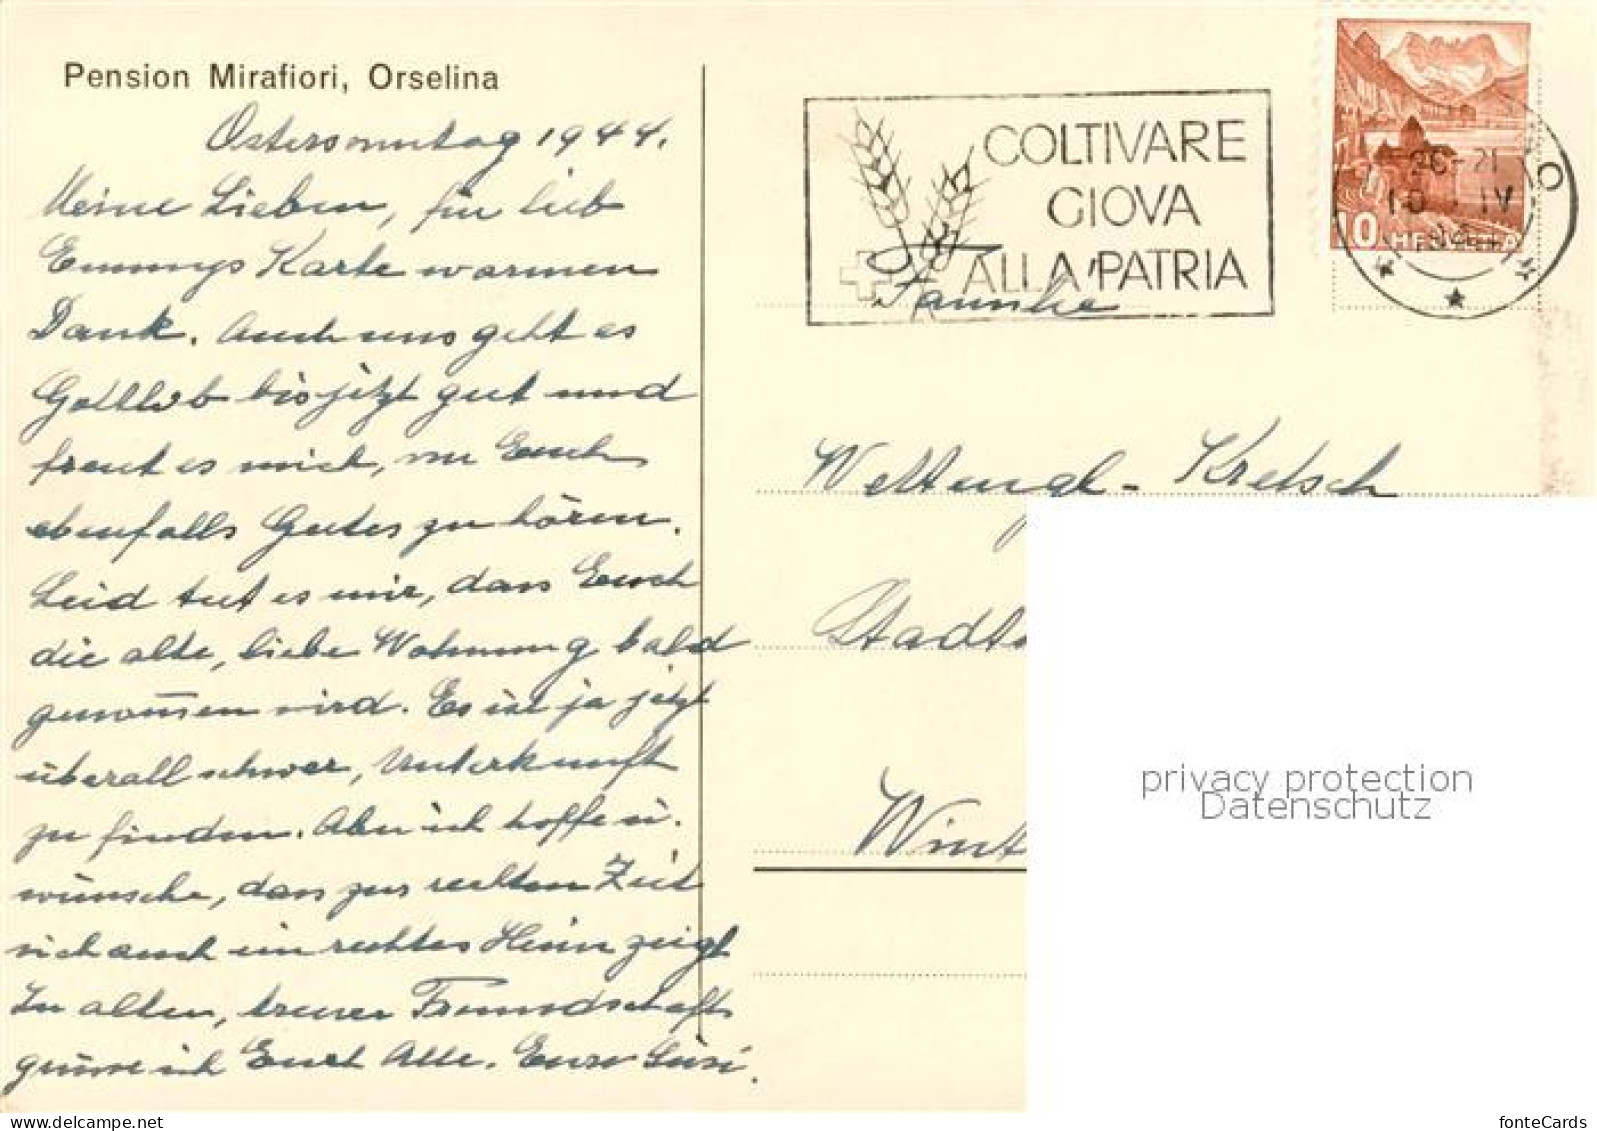 Pension Mirafiori, Orselina
Ostersonntag 1944.
Meine Lieben, für lieb
Emmys Karte warmen
Dank. Auch uns geht es
Gottlob bis jetzt gut und
freut es mich, von Euch
ebenfalls Gutes zu hören.
Leid tut es mir, dass Euch
die alte, liebe Wohnung bald
genom̄en wird. Es ist ja jetzt
überall schwer, Unterkunft
zu finden. Aber ich hoffe u.
wünsche, dass zur rechten Zeit
sich auch ein rechtes Heim zeigt
In alter, treuer Freundschaft
grüsse ich Euch Alle. Eure Susi.
COLTIVARE
GIOVA
ALLA PATRIA
20-21
10 IV
10 HELVETIA
Familie
Wettengl-Kretsch
Stadt
Wint
privacy protection
Datenschutz
fonteCards